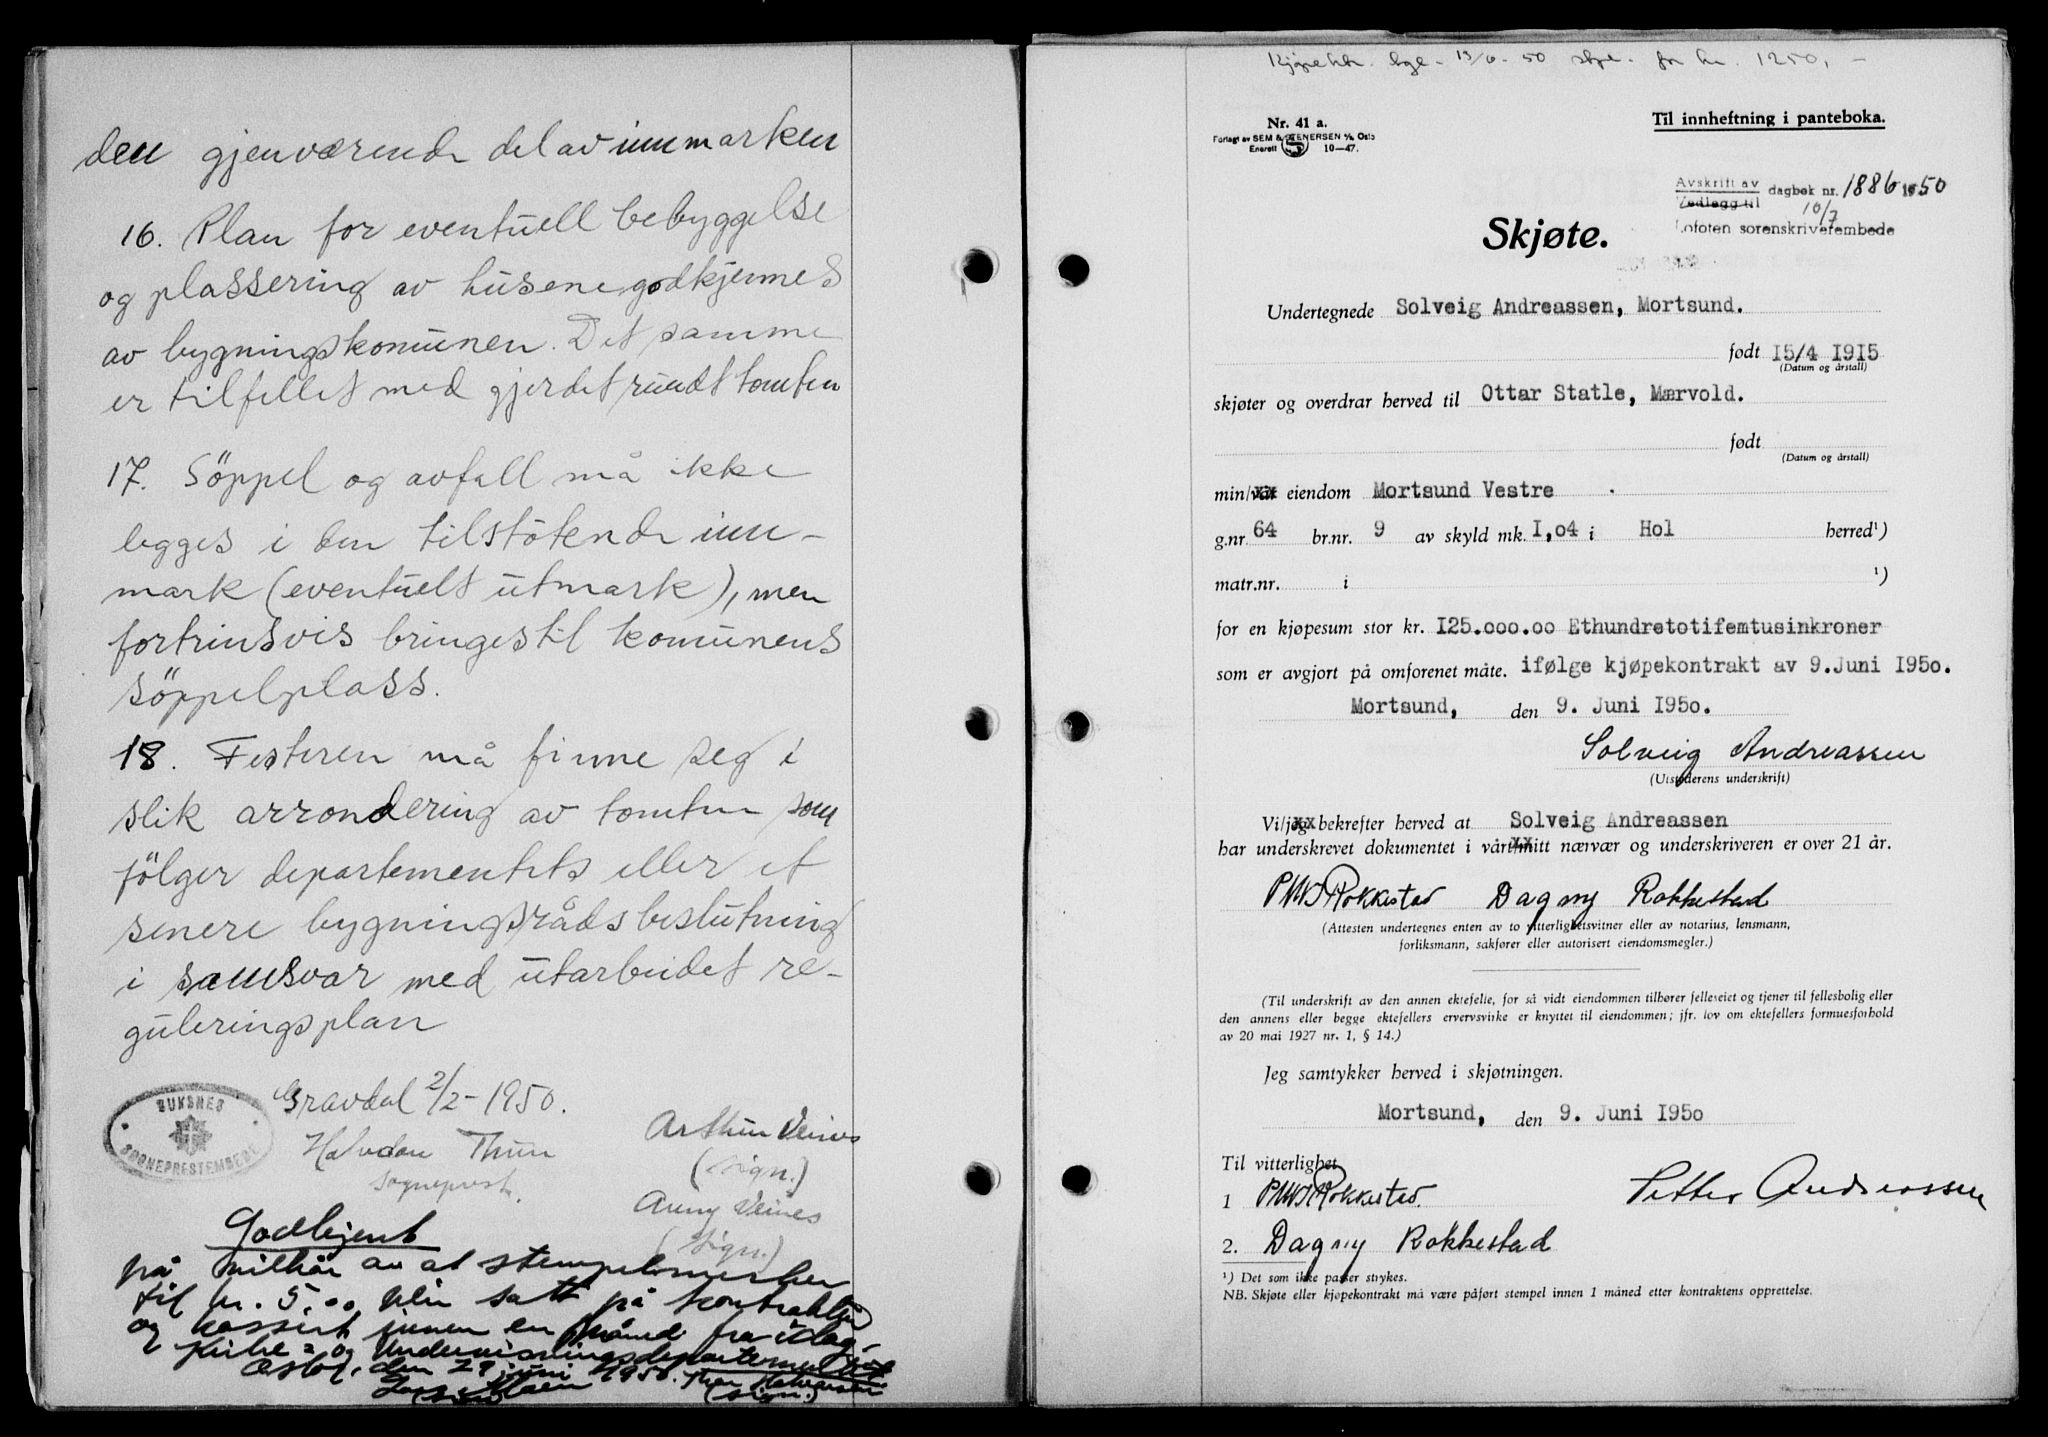 den gjenværende del av innmarken
16. Plan for eventuell bebyggelse
og plassering av husene godkjennes
av bygningskomunen. Det samme
er tilfellet med gjerdet rundt tomten
17. Söppel og avfall må ikke
legges i den tilstötende inn-
mark (eventuelt utmark), men
fortrinsvis bringes til komunens
söppelplass.
18. Festeren må finne seg i
slik arrondering av tomten som
fölger departementets eller et
senere bygningsrådsbeslutning
i samsvar med utarbeidet re-
guleringsplan
Gravdal 2/2-1950.
BUKSNES
SOGNEPRESTEMBEDE
Halvdan Thun
sogneprest.
Arthur Veines
(sign.)
Anny Veines
(sign.)
Godkjent
på vilkår av at stempelmerker
til kr. 5,00 blir satt på kontrakten
og kassert innen en måned fra idag.
Kirke- og Undervisningsdepartementet
Oslo, den 29 juni 1950.
(sign.)
Kjøpektr. bgl. 13/6-50 stpl. for kr. 1250,-
Nr. 41 a.
Forlagt av SEM & STENERSEN A/S Oslo
Enerett 10—47.
Til innheftning i panteboka.
Avskrift av
Vedlegg til dagbok nr. 1886 1950
10/7
Lofoten sorenskriverembede
Skjøte.
Undertegnede Solveig Andreassen, Mortsund.
født 15/4 1915
(Datum og årstall)
skjøter og overdrar herved til Ottar Statle, Mærvold.
født
(Datum og årstall)
min/vår eiendom Mortsund Vestre
g.nr. 64 br.nr. 9 av skyld mk. I,04 i Hol herred¹)
matr.nr. i ¹)
for en kjøpesum stor kr. I25.000.00 Ethundretotifemtusinkroner
som er avgjort på omforenet måte. ifølge kjøpekontrakt av 9.Juni I950.
Mortsund, den 9. Juni I950.
Solveig Andreassen
(Utstederens underskrift)
Vi/jeg bekrefter herved at Solveig Andreassen
har underskrevet dokumentet i vårt/mitt nærvær og underskriveren er over 21 år.
PMS Rokkestad Dagny Rokkestad
(Attesten undertegnes enten av to vitterlighetsvitner eller av notarius, lensmann,
forliksmann, sakfører eller autorisert eiendomsmegler.)
(Til underskrift av den annen ektefelle, for så vidt eiendommen tilhører felleseiet og tjener til fellesbolig eller
den annens eller begge ektefellers ervervsvirke er knyttet til eiendommen; jfr. lov om ektefellers formuesforhold
av 20 mai 1927 nr. 1, § 14.)
Jeg samtykker herved i skjøtningen.
Mortsund, den 9. Juni I950
Til vitterlighet
1 PMS Rokkestad.
Petter Andreassen
2. Dagny Rokkestad
¹) Det som ikke passer strykes.
NB. Skjøte eller kjøpekontrakt må være påført stempel innen 1 måned etter kontraktens opprettelse.